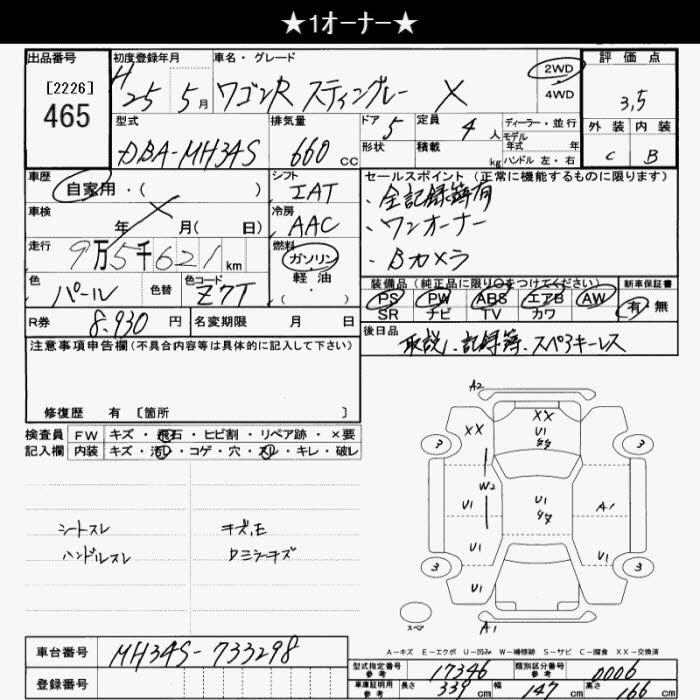 ★1オーナー★
出品番号
[2226]
465
初度登録年月
H25 5月
車名・グレード
ワゴンR スティングレー X
2WD
4WD
評価点
3,5
外装 内装
C B
型式
DBA-MH34S
排気量
660 cc
ドア 5
形状
定員 4 人
積載 kg
ディーラー・並行
モデル
年式 年
ハンドル 左・右
車歴
自家用・( )
シフト
IAT
セールスポイント (正常に機能するものに限ります)
・全記録簿有
・ワンオーナー
・Bカメラ
車検
年 月( 日)
冷房
AAC
走行
9万5千621 km
燃料
ガソリン
軽油
( )
色
パール
色替
色コード
Z7T
装備品 (純正品に限り○をつけてください)
PS PW ABS エアB AW
SR ナビ TV カワ
新車保証書
有・無
R券
8,930 円
名変期限 月 日
後日品
取説、記録簿、スペアキーレス
注意事項申告欄 (不具合内容等は具体的に記入して下さい)
修復歴 有 [箇所 ]
検査員
記入欄
FW キズ・飛石・ヒビ割・リペア跡・×要
内装 キズ・汚レ・コゲ・穴・スレ・キレ・破レ
シートスレ
ハンドルスレ
キズ,モ
Dミラーキズ
A2
XX
XX
U1
3
3
W2
U1
U1
A1
U1
U1
U1
3
3
スペア
A1
A-キズ E-エクボ U-凹み W-補修跡 S-サビ C-腐食 XX-交換済
車台番号
MH34S-733298
登録番号
型式指定番号
参考
17346
類別区分番号
参考
0006
車庫証明用
参考
長さ 339 cm 幅 147 cm 高さ 166 cm